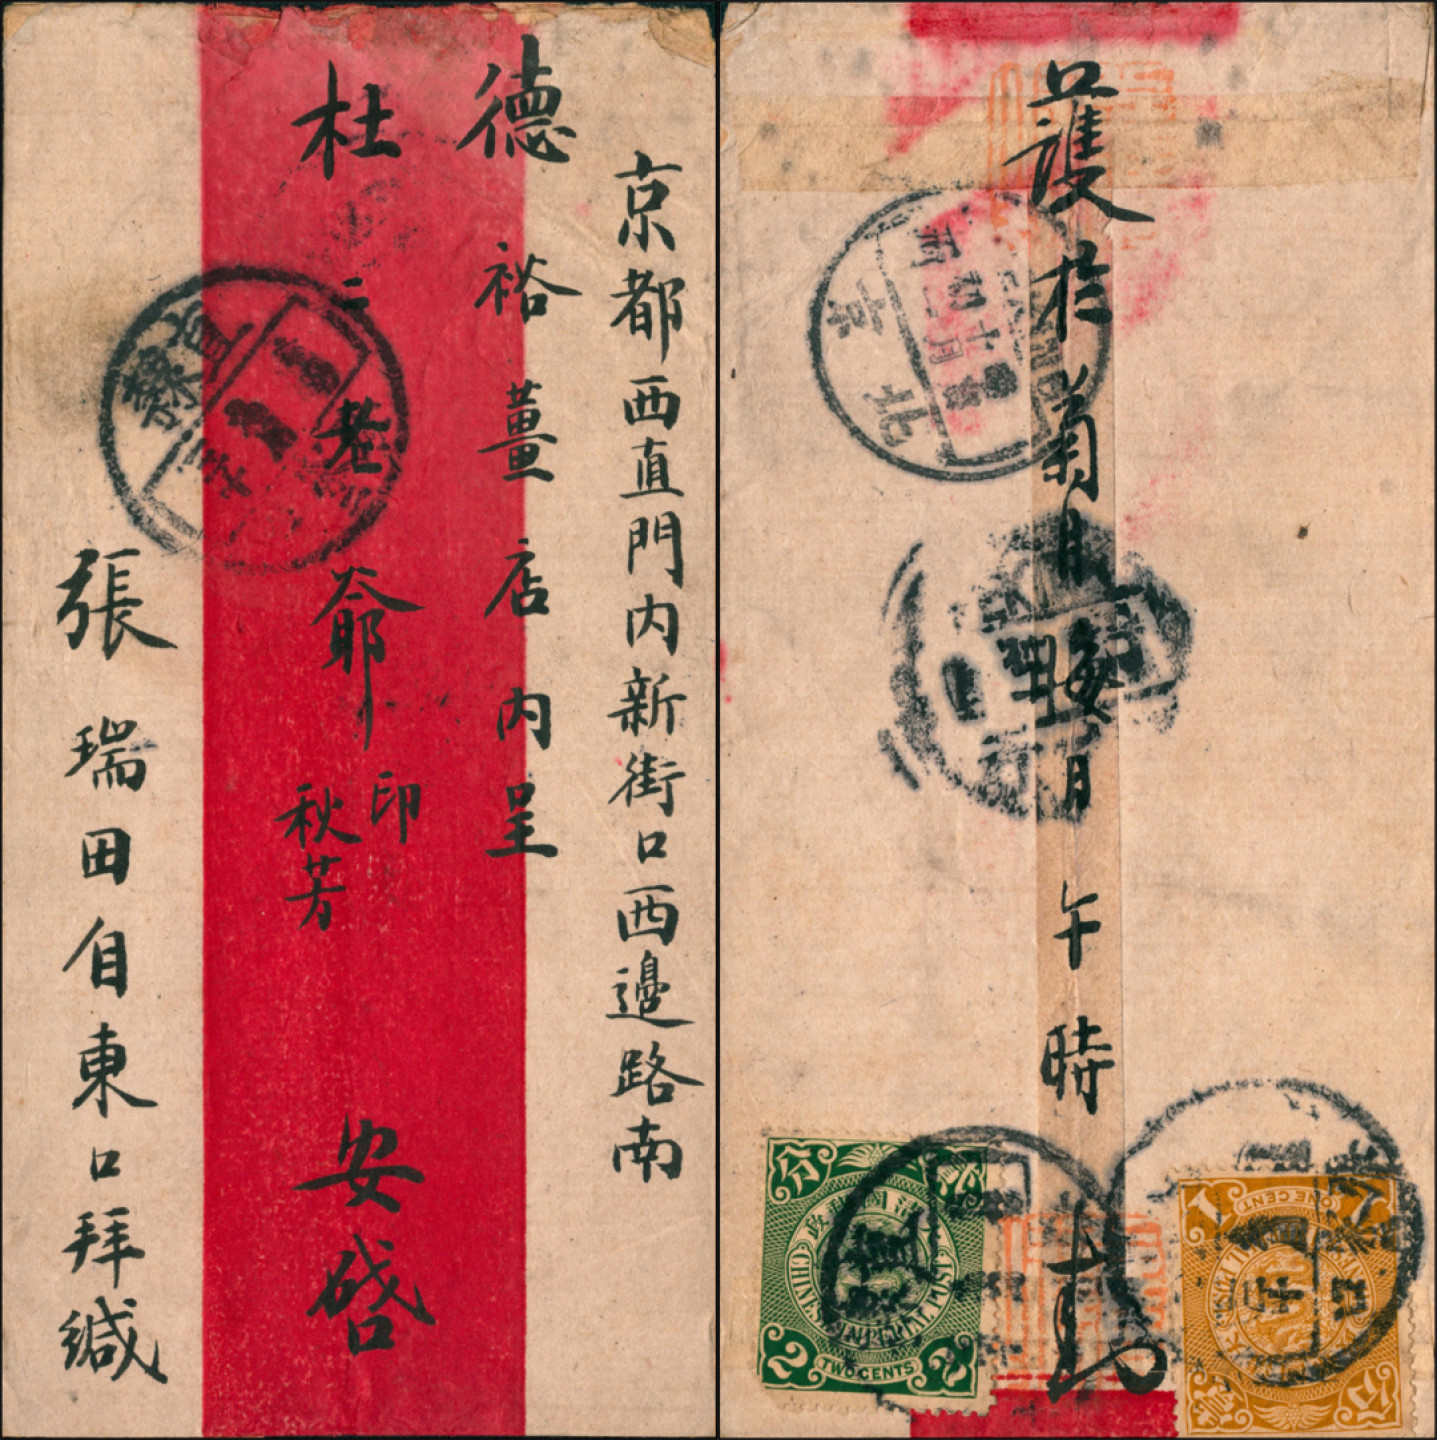 京都西直門内新街口西邊路南
德裕薑店内呈
杜二老爺印秋芳安啓
張瑞田自東口拜緘
護於菊月晦日午時
北京
直隸
2
TWO CENTS
CHINESE IMPERIAL POST
1
ONE CENT